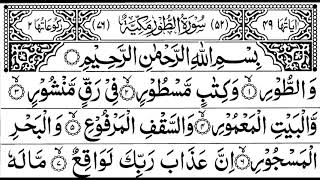 اٰیاتها ٤٩ (٥٢) سُوْرَةُ الطُّوْرِ مَكِّيَّةٌ (٧٦) رکوعاتها ٢
بِسْمِ اللّٰهِ الرَّحْمٰنِ الرَّحِيْمِ
وَ الطُّوْرِ ١ وَ كِتٰبٍ مَّسْطُوْرٍ ٢ فِیْ رَقٍّ مَّنْشُوْرٍ ٣
وَّ الْبَیْتِ الْمَعْمُوْرِ ٤ وَ السَّقْفِ الْمَرْفُوْعِ ٥ وَ الْبَحْرِ
الْمَسْجُوْرِ ٦ اِنَّ عَذَابَ رَبِّكَ لَوَاقِعٌ ٧ مَّا لَهٗ